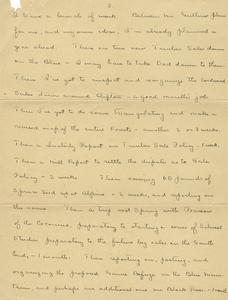 2.
I have a bunch of work. Between Mr. plans
for me, and my own ideas, I'm already planned a
year ahead. There are two new Timber Sales down
on the Blue - I may have to take Dad down to them.
Then I've got to inspect and reorganize the
Sales down around Clifton - a good month's job.
Then I've got to do some Triangulating and make a
revised map of the entire Forest - another 2 or 3 weeks.
Then a Report on Timber Sale Policy - 1 week.
Then a Mill Report to settle the dispute as to Sale
Policy - 2 weeks. Then sowing 60 pounds of
Spruce Seed up at Alpine - 2 weeks, and reporting on
the same. Then a trip next Spring with
of the Coconino, preparatory to starting a series of
Studies preparatory to the future big sales on the South
end, - 1 month. Then reporting on, posting, and
organizing the proposed Game Refuge in the Blue Moun-
tains, and perhaps an additional one on Black River - 1 month